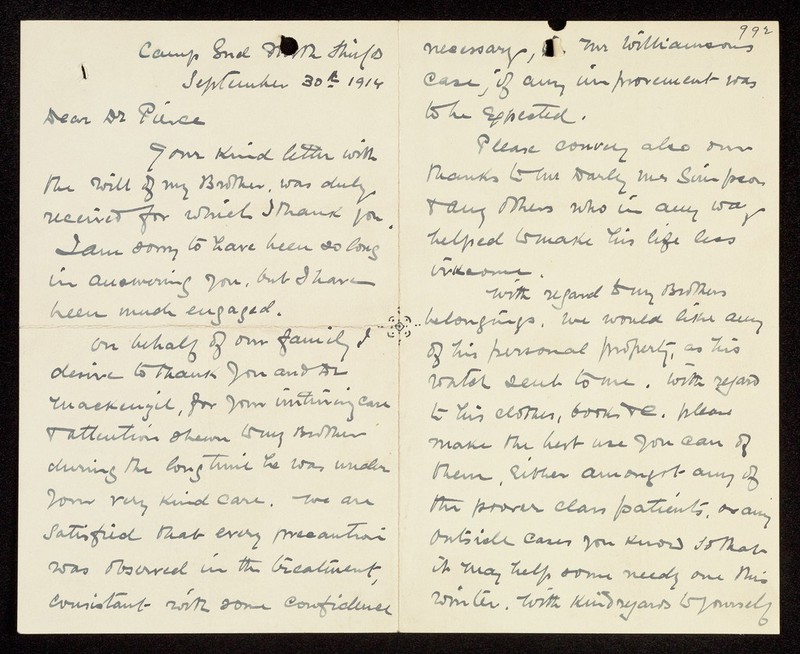 Camp End North Shields
September 30th 1914
Dear Dr Pierce
Your kind letter with
the will of my Brother, was duly
received for which I thank you.
I am sorry to have been so long
in answering you, but I have
been much engaged.
On behalf of our family I
desire to thank you and Dr
Mackenzie, for your untiring care
& attention shewn to my Brother
during the long time he was under
your very kind care. We are
satisfied that every precaution
was observed in the treatment,
consistant with some confidence
992
necessary, Mr Williamsons
case, if any improvement was
to be expected.
Please convey also our
thanks to Mr Darly Mr Simpson
& any others who in any way
helped to make his life less
irksome.
With regard to my Brothers
belongings. We would like any
of his personal property, as his
watch sent to me. With regard
to his clothes, books &c. please
make the best use you can of
them, either amongst any of
the poorer class patients, or any
outside cases you know so that
it may help some needy one this
winter. With kind regards to yourself